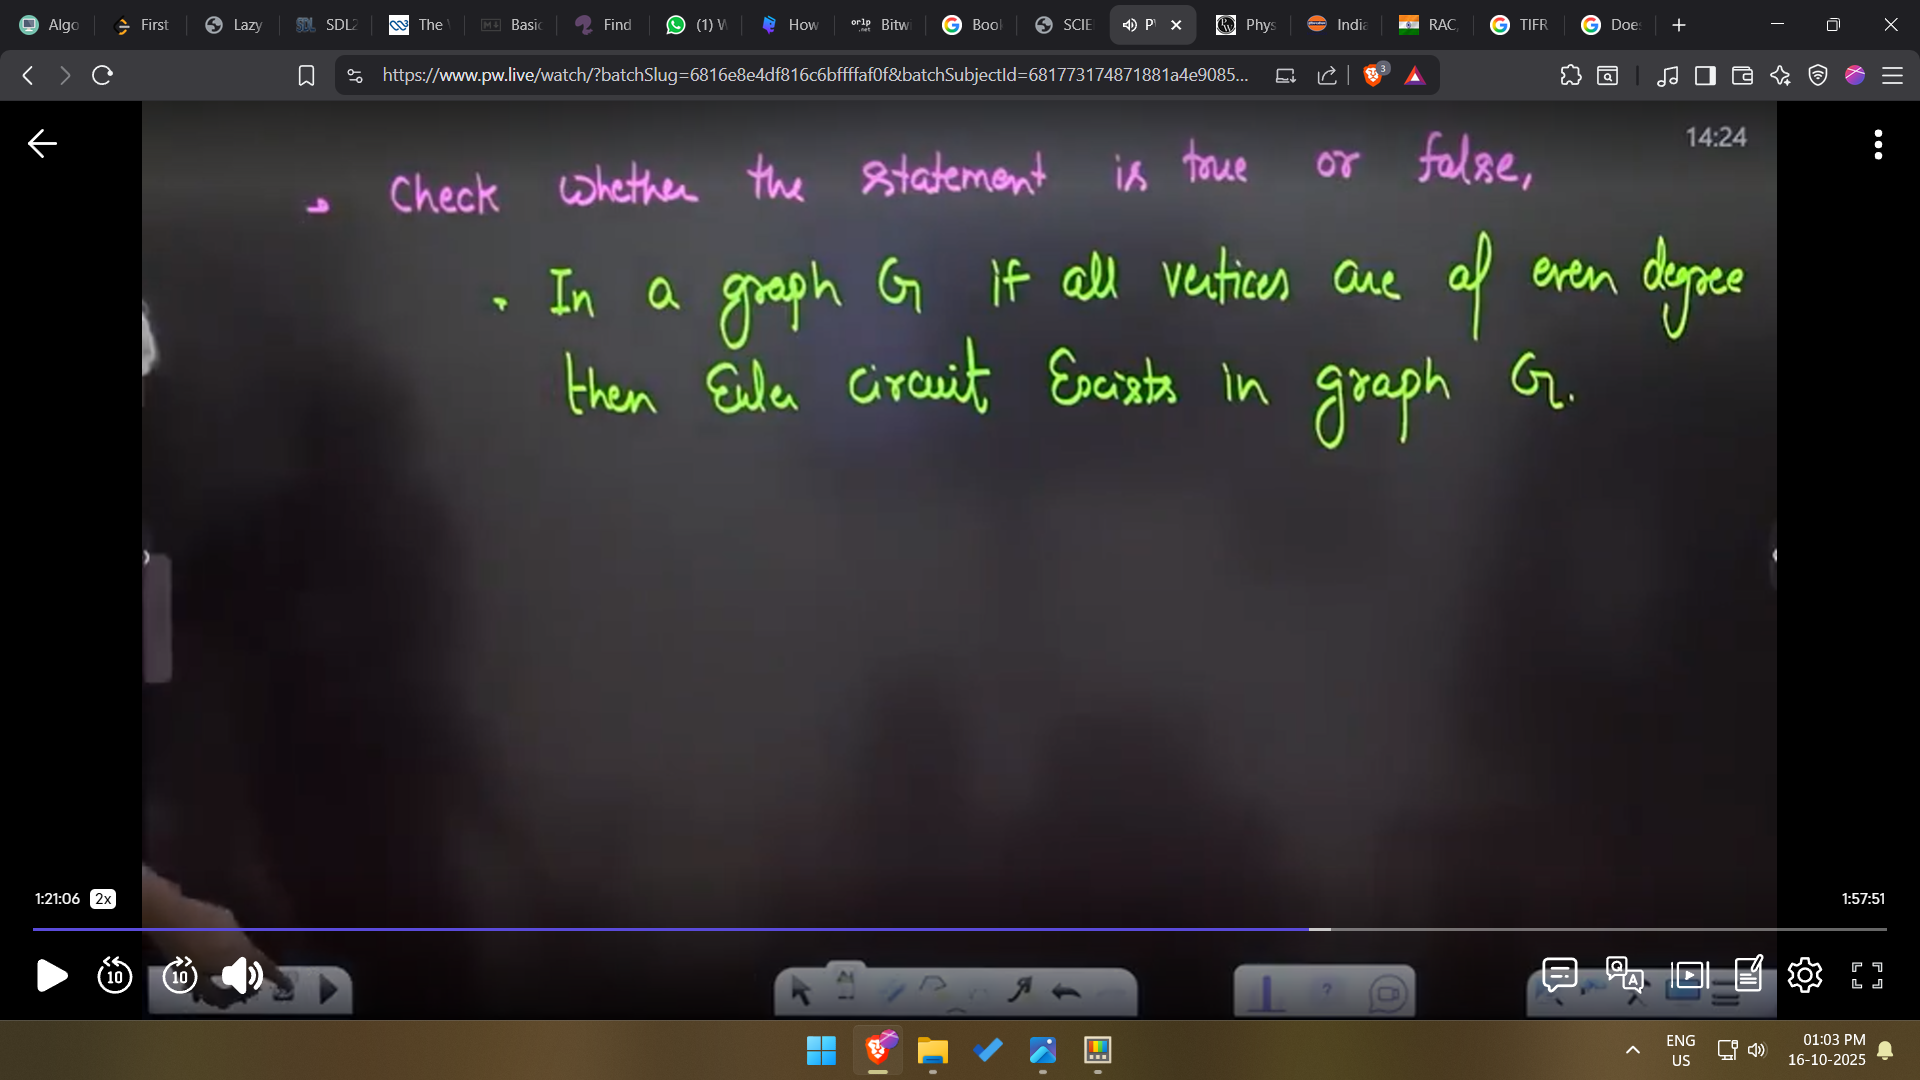 Algo
First
Lazy
SDL2
The
Basic
Find
(1) W
How
orlp .net
Bitwi
Bool
SCIE
P
Phys
India
RAC,
TIFR
Does
https://www.pw.live/watch/?batchSlug=6816e8e4df816c6bffffaf0f&batchSubjectId=681773174871881a4e9085...
3
14:24
Check whether the statement is true or false,
In a graph G if all vertices are of even degree
then Euler circuit Exists in graph G.
1:21:06 2x
1:57:51
10
10
22
?
Q A
ENG
US
01:03 PM
16-10-2025